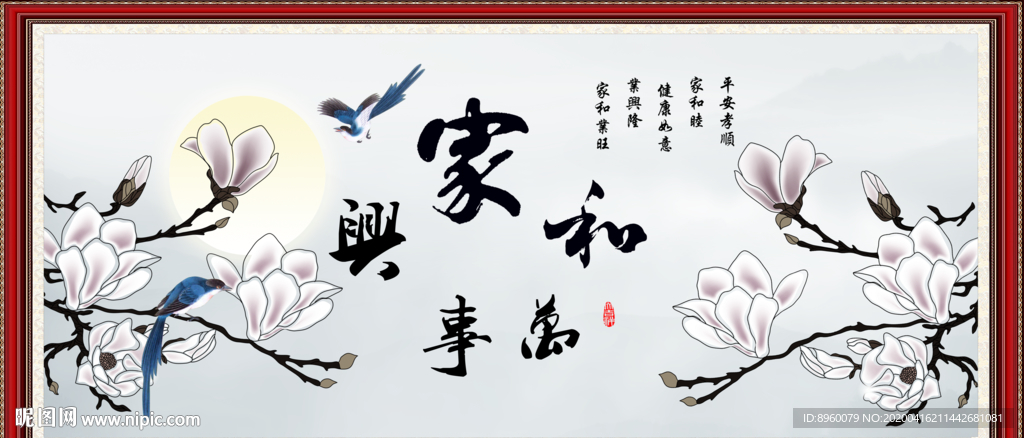 家和萬事興
平安孝順
家和睦
健康如意
業興隆
家和業旺
昵图网 www.nipic.com
ID:8960079 NO:20200416211442681081